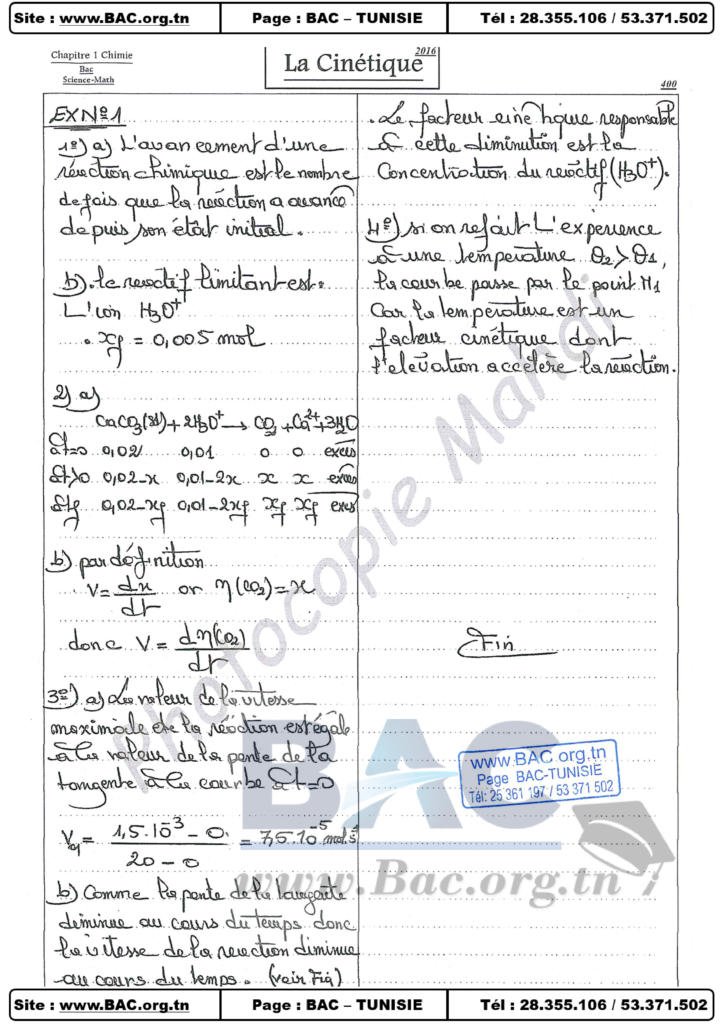 Site : www.BAC.org.tn Page : BAC – TUNISIE Tél : 28.355.106 / 53.371.502
Chapitre 1 Chimie
Bac
Science-Math
La Cinétique
2016
400
EX N°1
1°) a) L'avancement d'une
réaction chimique est le nombre
de fois que la réaction a avancé
depuis son état initial.
b). le réactif limitant est.
L'ion H3O+
. xf = 0,005 mol
2) a)
CaCO3(sd) + 2H3O+ → CO2 + Ca2+ + 3H2O
à t=0 0,02 0,01 0 0 excès
à t>0 0,02-x 0,01-2x x x excès
à tf 0,02-xf 0,01-2xf xf xf excès
b) par définition
V = dx/dt or n(CO2) = x
donc V = dn(CO2)/dt
3°) a) La valeur de la vitesse
maximale de la réaction est égale
à la valeur de la pente de la
tangente à la courbe à t=0
V = 1,5.10-3 - 0 / 20 - 0 = 7,5.10-5 mol.s-1
b) Comme la pente de la tangente
diminue au cours du temps donc
la vitesse de la reaction diminue
au cours du temps. (voir Fig)
. Le facteur cinétique responsable
à cette diminution est la
Concentration du reactif (H3O+).
4°) si on refait L'expérience
à une température θ2 > θ1,
la courbe passe par le point M1
Car la température est un
facteur cinétique dont
l'elevation accélère la réaction.
Fin
Photocopie Mahdi
BAC
www.Bac.org.tn
www.BAC org.tn
Page BAC-TUNISIE
Tél: 25 361 197 / 53 371 502
Site : www.BAC.org.tn Page : BAC – TUNISIE Tél : 28.355.106 / 53.371.502